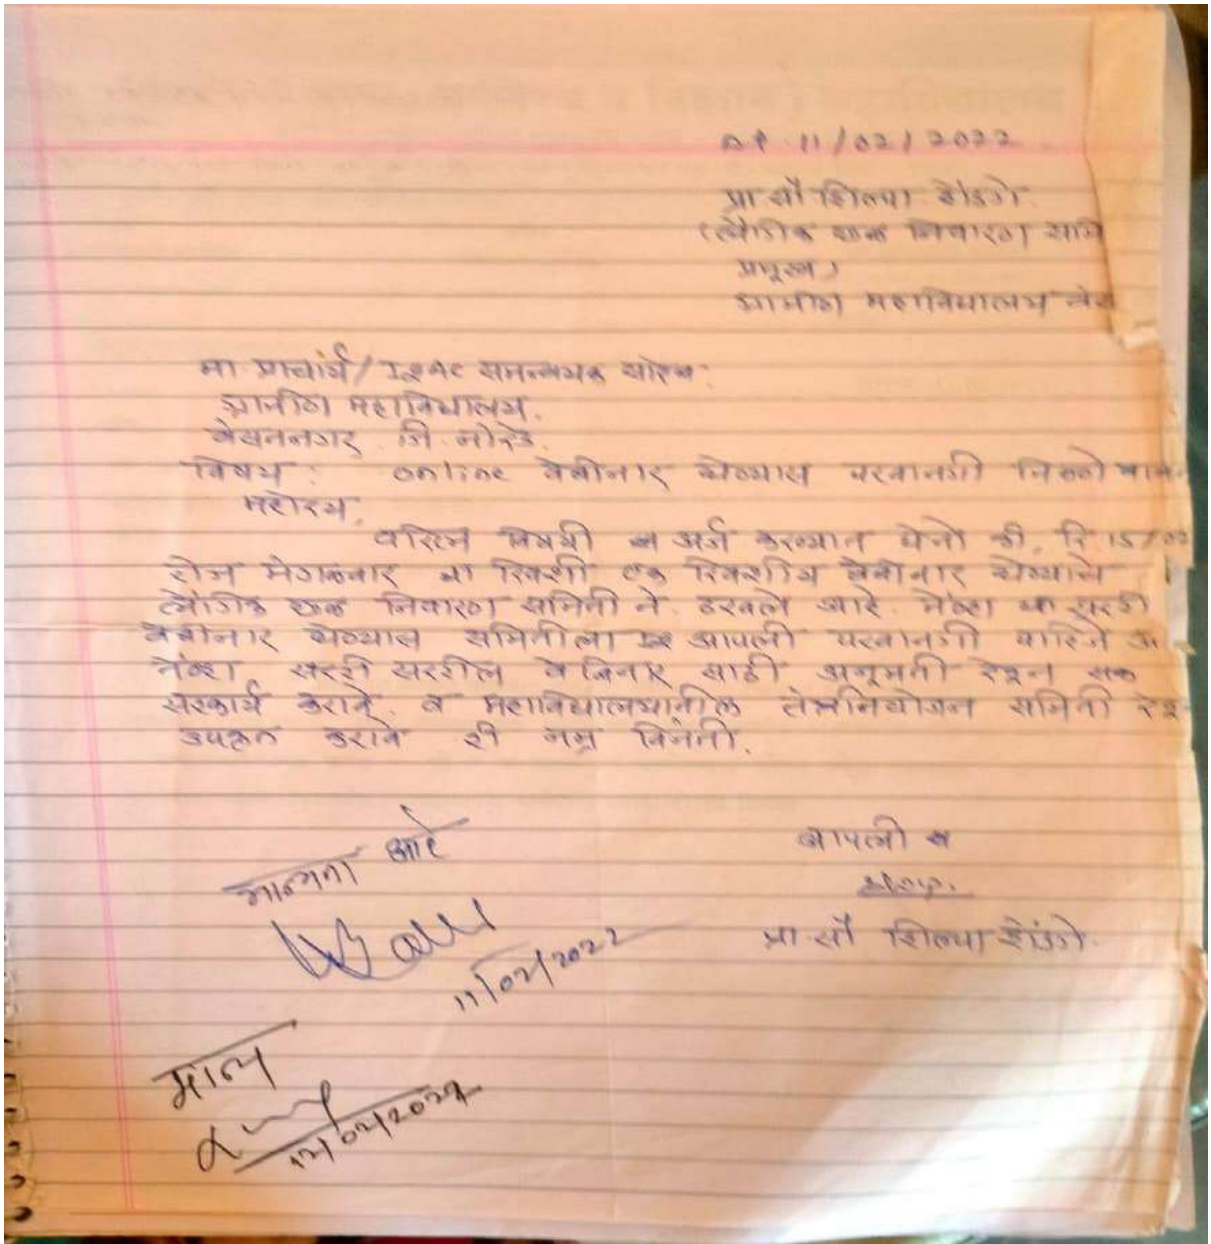 दि 11/02/2022
प्रा सौ शिल्पा शेंडगे
(लैंगिक छळ निवारण समि
प्रमूख)
ग्रामीण महाविद्यालय
मा. प्राचार्य / IQAC समन्वयक साहेब.
ग्रामीण महाविद्यालय.
वसंतनगर जि. नांदेड.
विषय : online वेबीनार घेण्यास परवानगी मिळणे
महोदय,
वरिल विषयी अर्ज करण्यात येतो की, दि 15/02
रोज मंगळवार या दिवशी एक दिवशीय वेबीनार घेण्याचे
लैंगिक छळ निवारण समिती ने ठरवले आहे. तेंव्हा
वेबीनार घेण्यास समितीला आपली परवानगी पाहिजे
तेंव्हा सदरील वेबिनार साठी अनूमती देऊन
सहकार्य करावे. व महाविद्यालयातील समिती
उपकृत करावे ही नम्र विनंती.
मान्यता आहे
11/02/2022
आपली
प्रा. सौ शिल्पा शेंडगे.
मान्य
12/02/2022